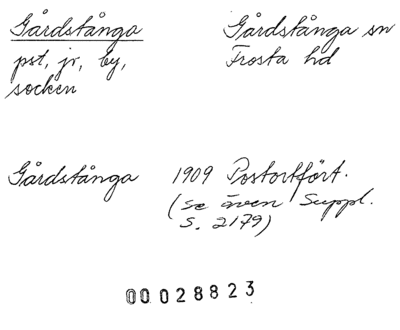 Gårdstånga
Gårdstånga sn
pst, jr, by,
Frosta hd
socken
Gårdstånga 1909 Postortfört.
(se även Suppl.
S. 2179)
00 028823